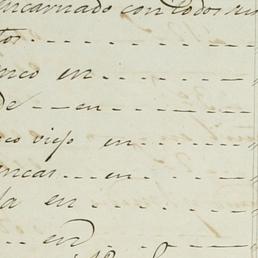 encarnado con todos sus
tos
nco en
de en
co viejo en
ncas en
la en
en